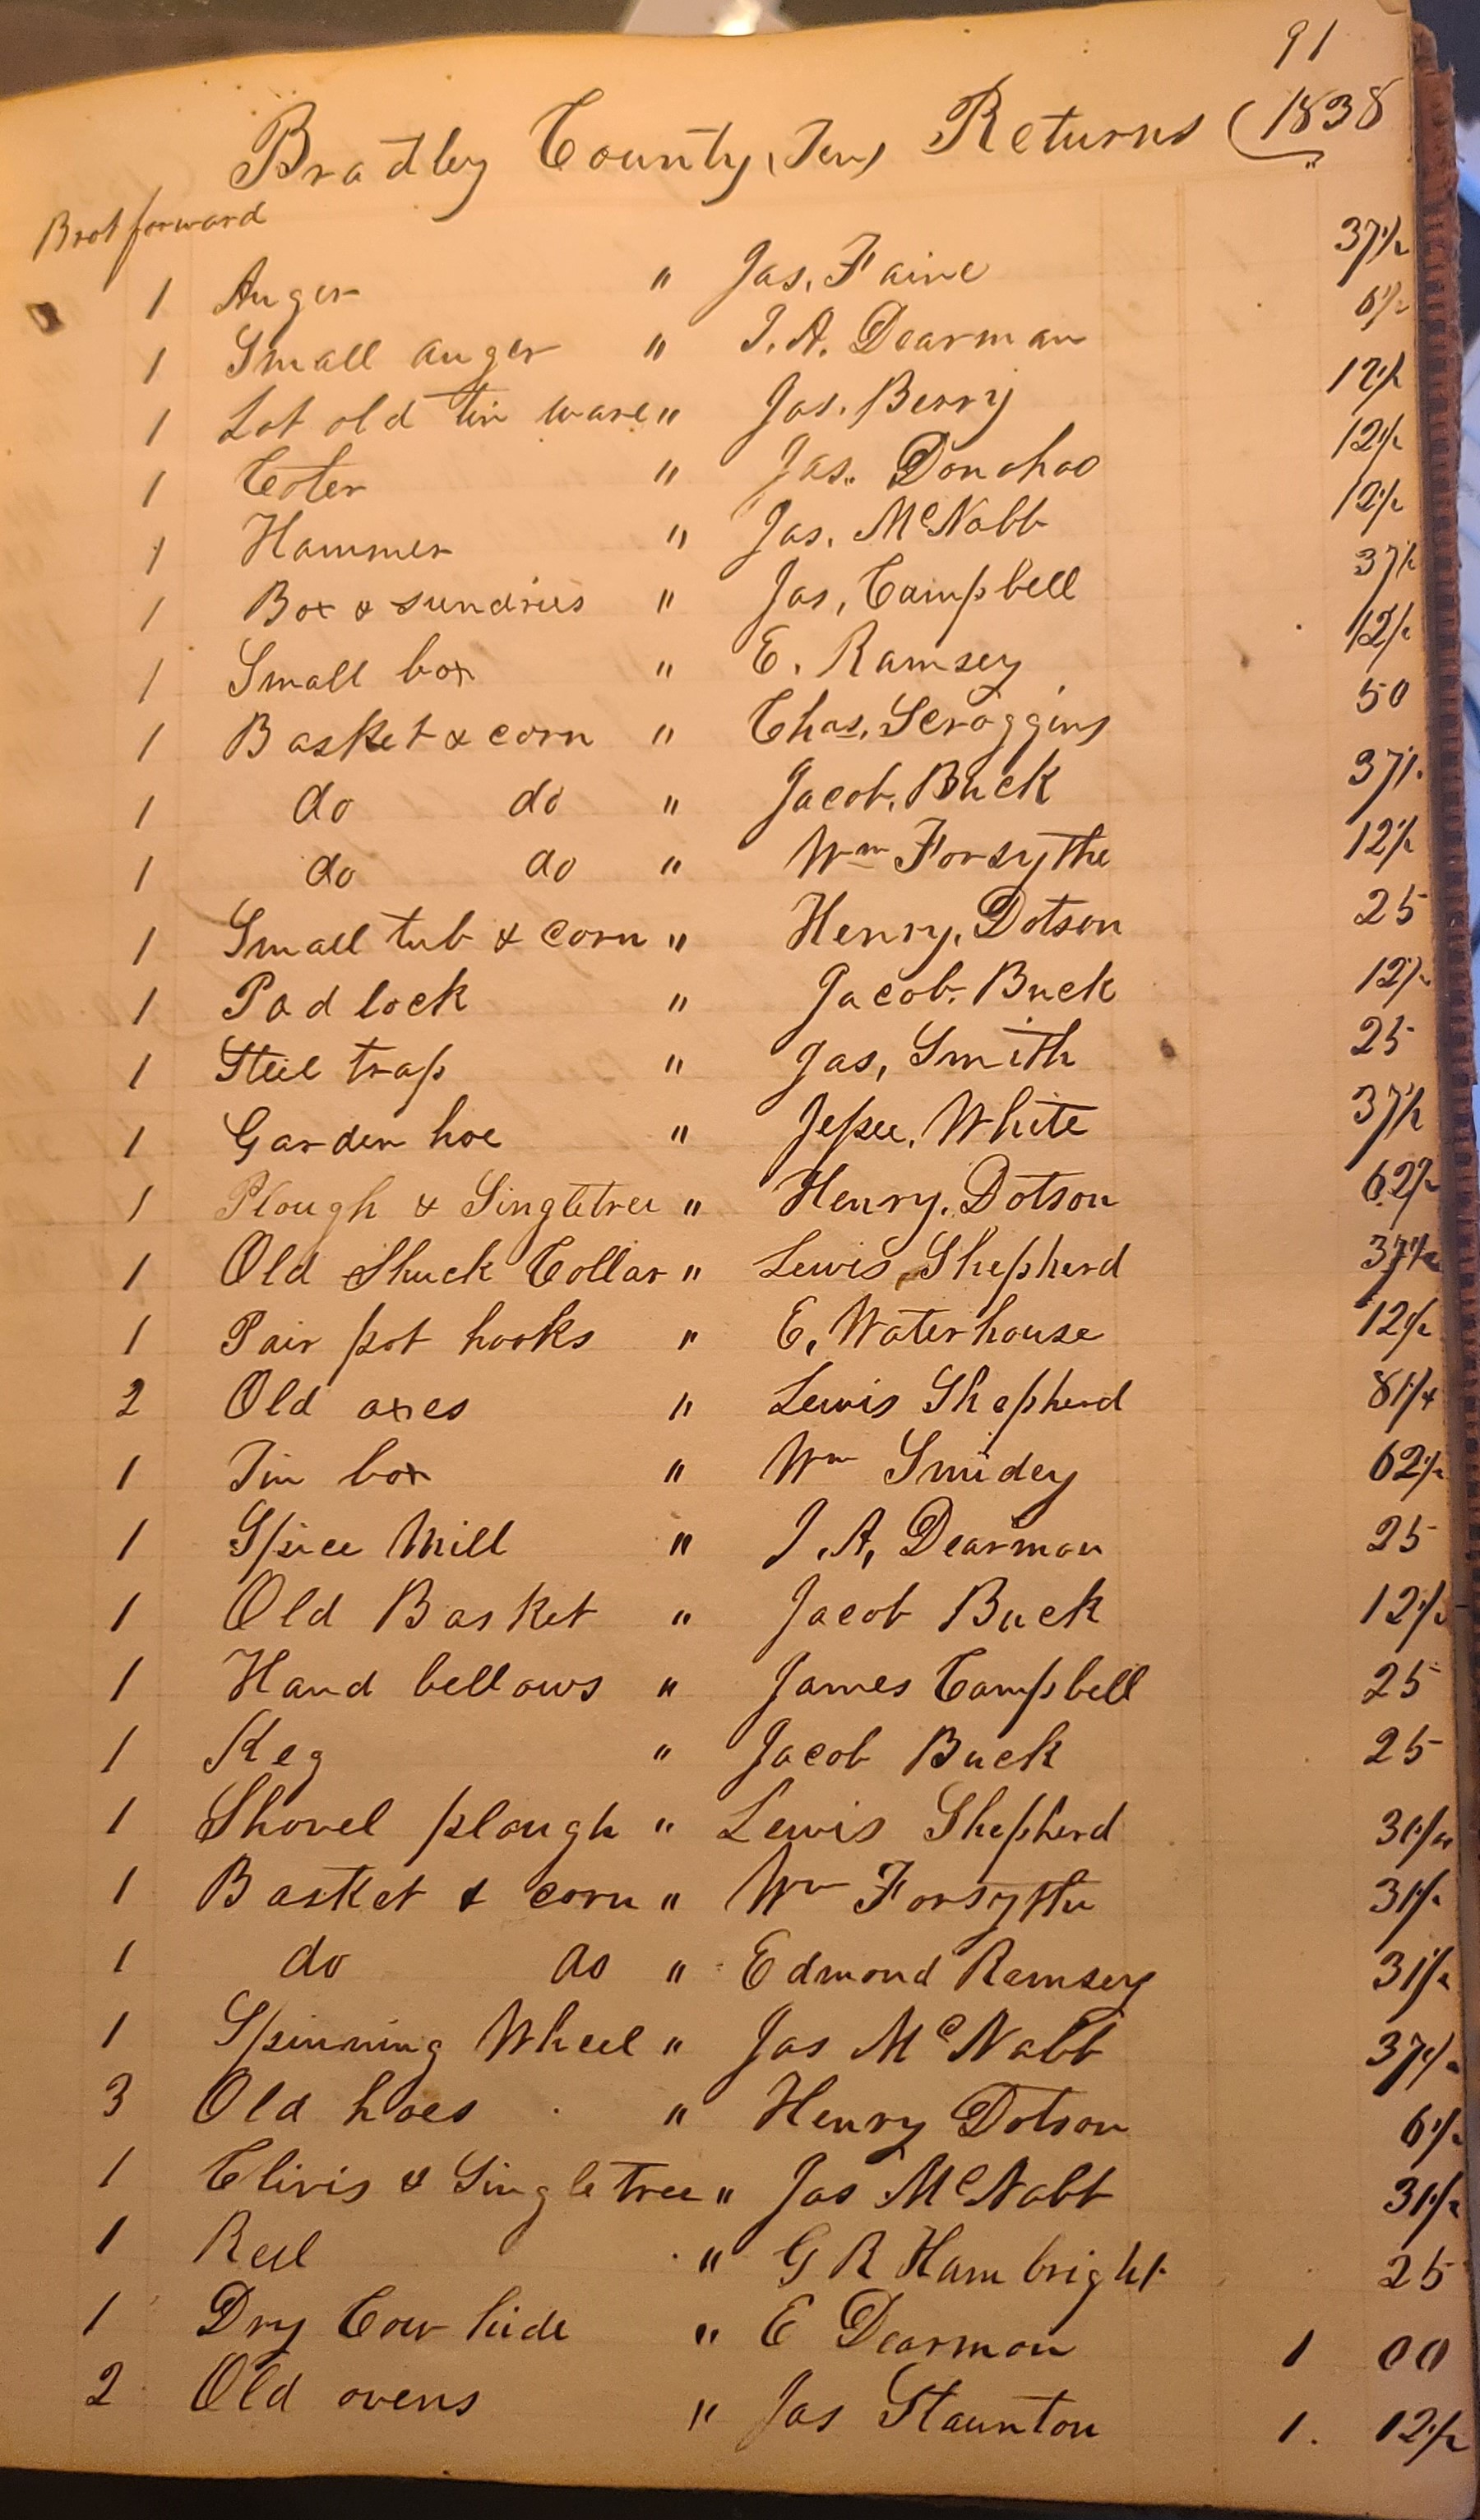 91
Bradley County, Ten, Returns (1838
Brot forward
1 Auger " Jas. Faine 37½
1 Small auger " J. A. Dearman 6½
1 Lot old tin ware " Jas. Berry 12½
1 Coter " Jas. Donohoo 12½
1 Hammer " Jas. McNabb 12½
1 Box & sundries " Jas, Campbell 37½
1 Small box " E. Ramsey 12½
1 Basket & corn " Chas. Scroggins 50
1 do do " Jacob. Buck 37½
1 do do " Wm Forsythe 12½
1 Small tub & corn " Henry. Dotson 25
1 Pad lock " Jacob. Buck 12½
1 Steel trap " Jas, Smith 25
1 Garden hoe " Jessee. White 37½
1 Plough & Singletree " Henry. Dotson 62½
1 Old Shuck Collar " Lewis Shepherd 37½
1 Pair pot hooks " E. Waterhouse 12½
2 Old axes " Lewis Shepherd 81¼
1 Tin box " Wm Smidey 62½
1 Spice Mill " J. A. Dearman 25
1 Old Basket " Jacob Buck 12½
1 Hand bellows " James Campbell 25
1 Keg " Jacob Buck 25
1 Shovel plough " Lewis Shepherd 31¼
1 Basket & corn " Wm Forsythe 31½
1 do do " Edmond Ramsey 31½
1 Spinning Wheel " Jas McNabb 37½
3 Old hoes " Henry Dotson 6½
1 Clivis & Singletree " Jas McNabb 31½
1 Reel " G R Hambright 25
1 Dry Cow hide " E Dearmon 1 00
2 Old ovens " Jas Staunton 1. 12½